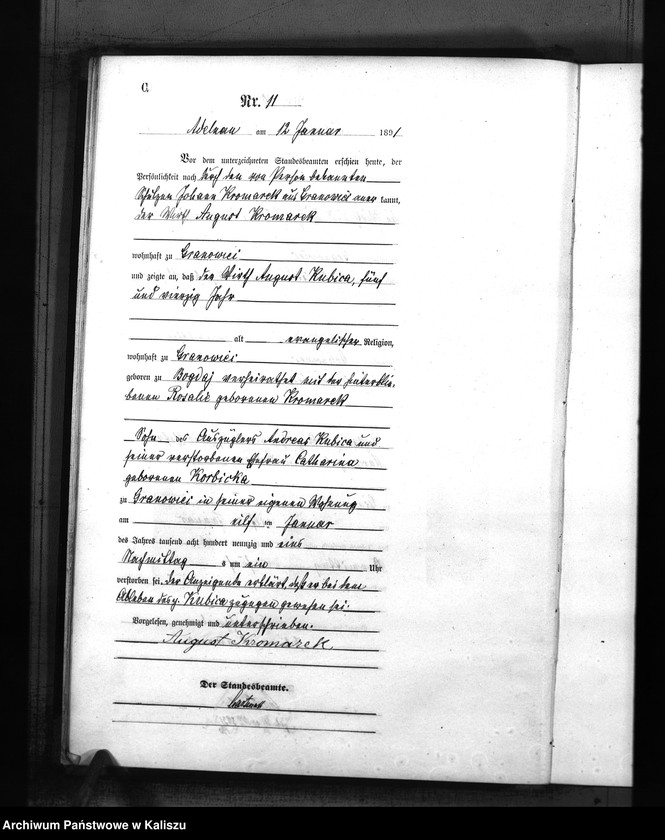 C.
Nr. 11
Adelnau am 12 Januar 1891
Vor dem unterzeichneten Standesbeamten erschien heute, der
Persönlichkeit nach durch den von Person bekannten
Schulzen Johann Kromarek aus Granowiec aner kannt,
der Wirth August Kromarek
wohnhaft zu Granowiec
und zeigte an, daß der Wirth August Kubica, fünf
und vierzig Jahr
alt evangelischer Religion,
wohnhaft zu Granowiec
geboren zu Bogdaj verheirathet mit der hinterblie-
benen Rosalie geborenen Kromarek
Sohn des Auszüglers Andreas Kubica und
seiner verstorbenen Ehefrau Catharina
geborenen Korbicka
zu Granowiec in seiner eigenen Wohnung
am eilf ten Januar
des Jahres tausend acht hundert neunzig und eins
Nachmittag s um ein Uhr
verstorben sei, der Anzeigende erklärt, daß er bei dem
Ableben des p. Kubica zugegen gewesen sei.
Vorgelesen, genehmigt und unterschrieben.
August Kromarek
Der Standesbeamte.
Archiwum Państwowe w Kaliszu